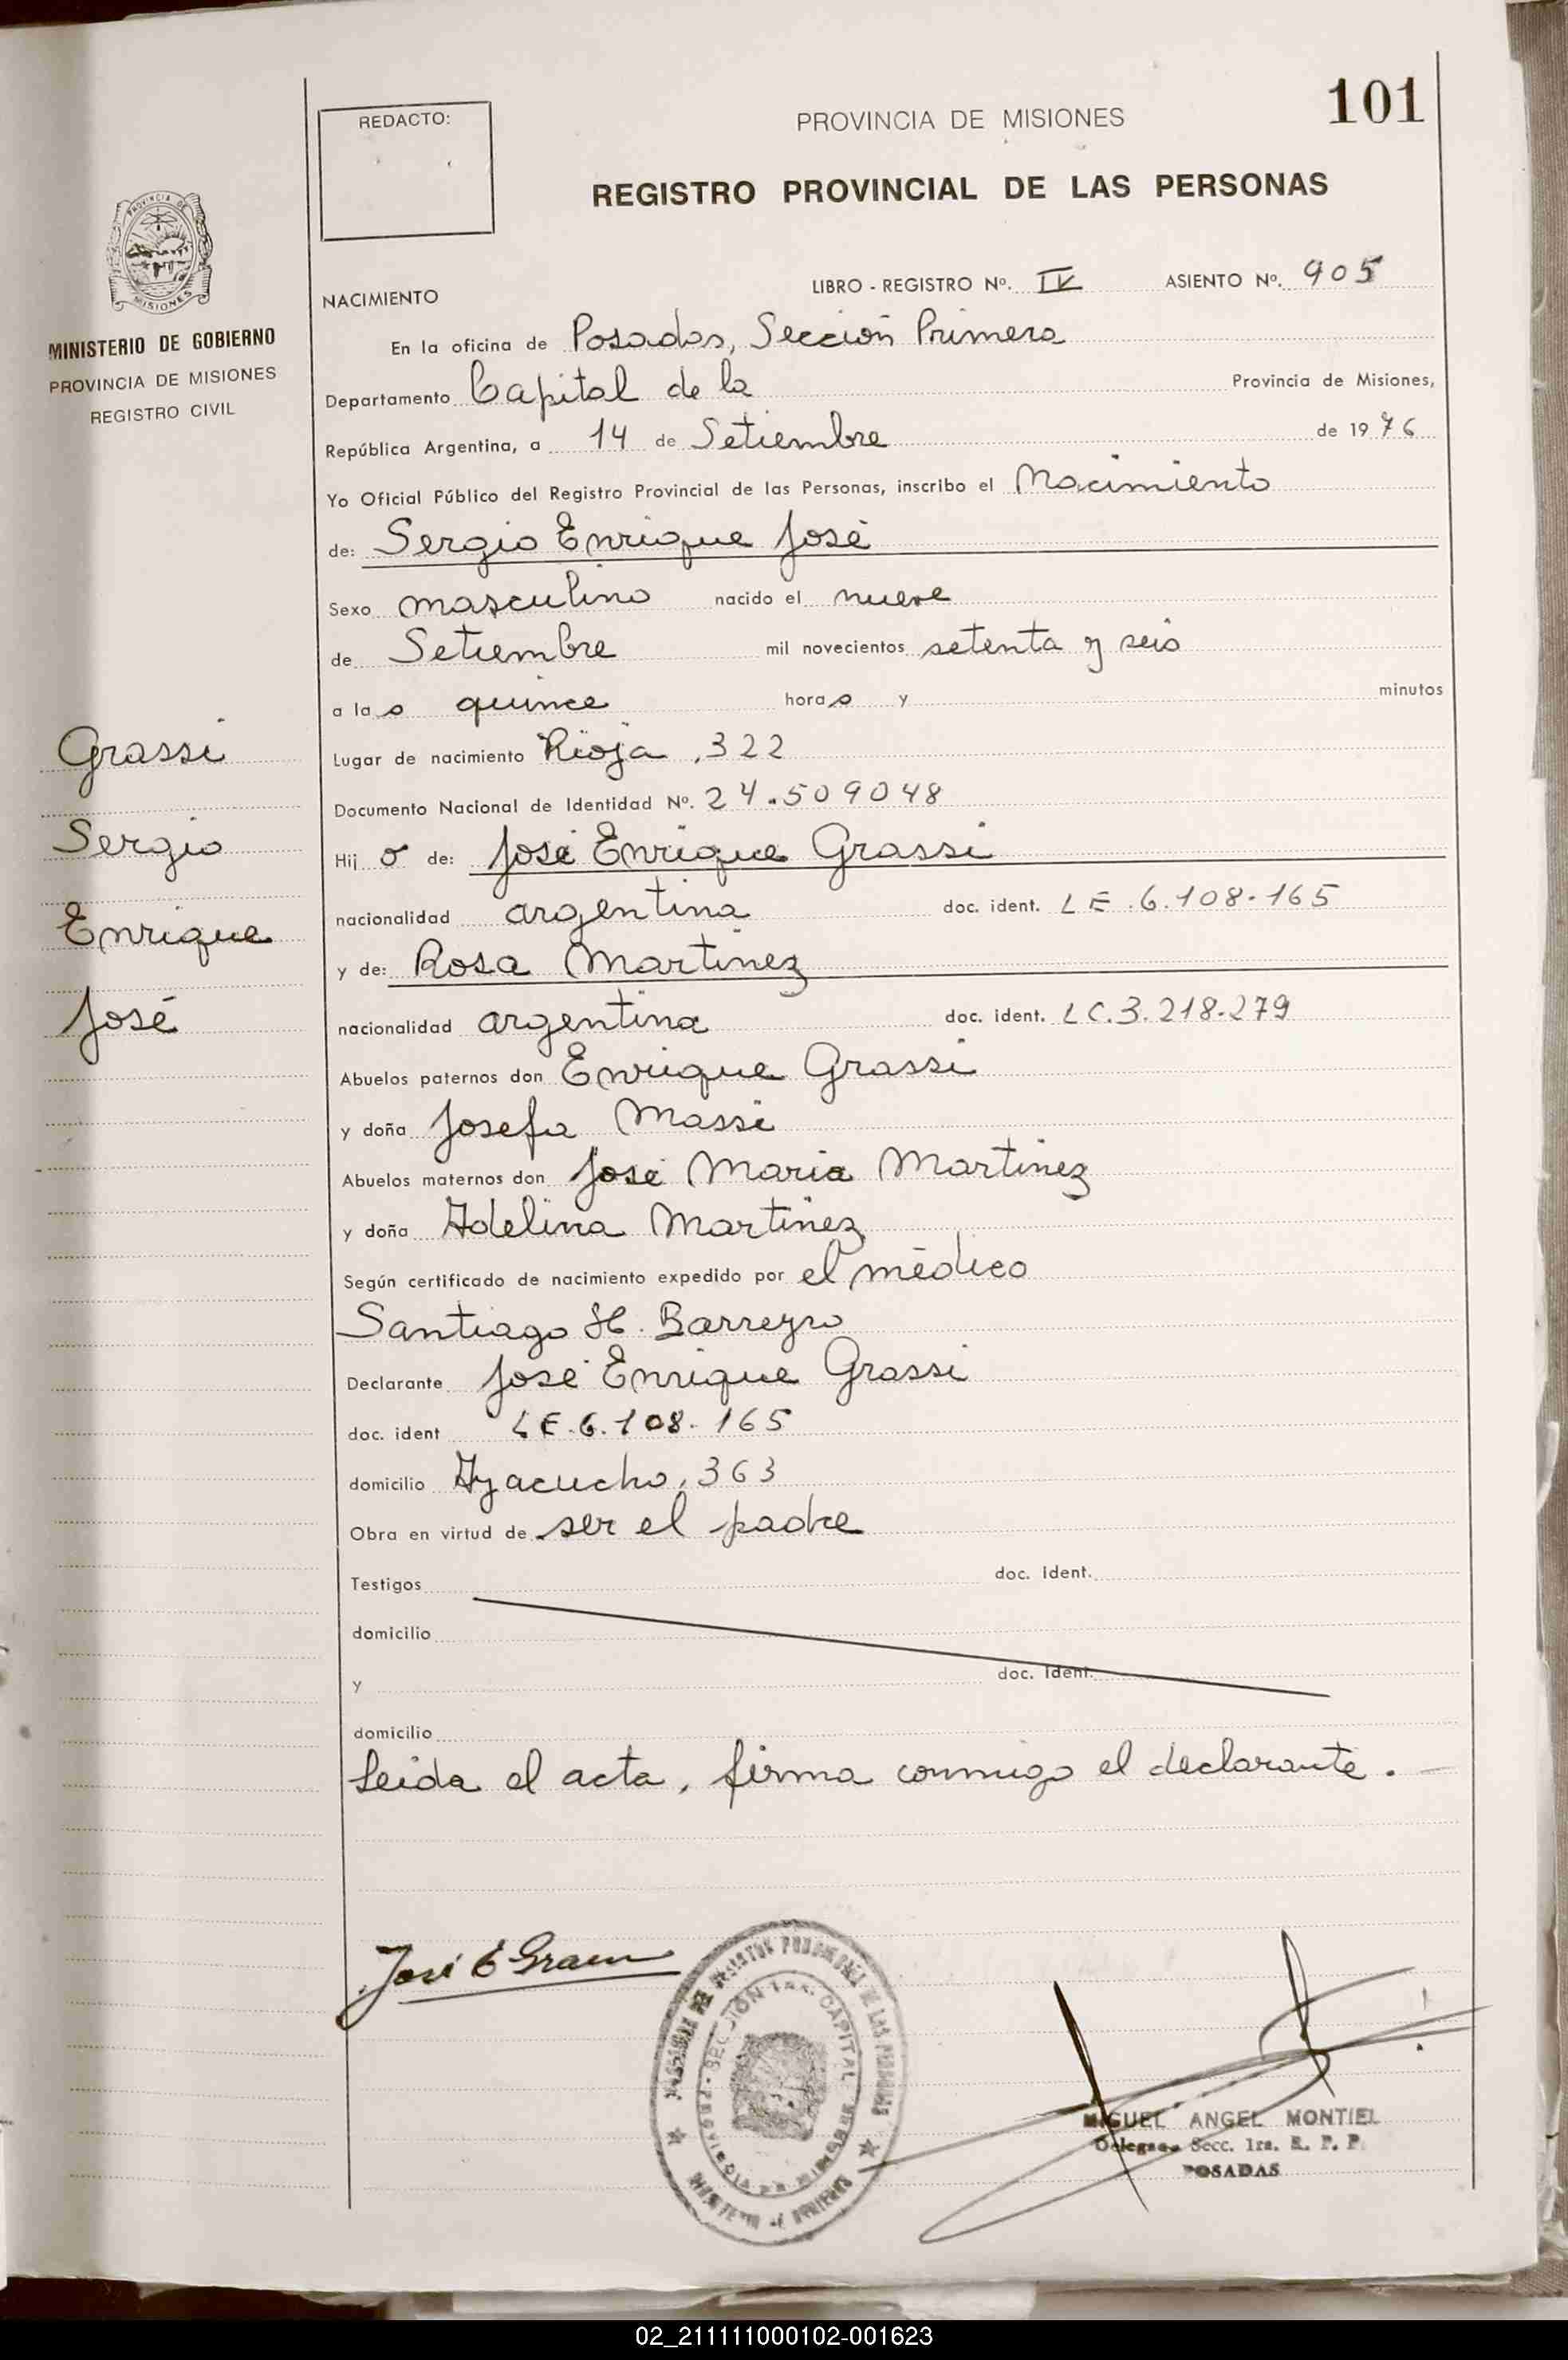 101
REDACTO:
PROVINCIA DE MISIONES
REGISTRO PROVINCIAL DE LAS PERSONAS
PROVINCIA DE
MISIONES
MINISTERIO DE GOBIERNO
PROVINCIA DE MISIONES
REGISTRO CIVIL
NACIMIENTO
LIBRO - REGISTRO Nº. IV ASIENTO Nº. 905
En la oficina de Posadas, Sección Primera
Departamento Capital de la Provincia de Misiones,
República Argentina, a 14 de Setiembre de 1976
Yo Oficial Público del Registro Provincial de las Personas, inscribo el Nacimiento
de: Sergio Enrique José
Sexo masculino nacido el nueve
de Setiembre mil novecientos setenta y seis
a la s quince hora s y minutos
Grassi
Lugar de nacimiento Rioja, 322
Documento Nacional de Identidad Nº. 24.509048
Sergio
Hij o de: José Enrique Grassi
nacionalidad argentina doc. ident. LE.6.108.165
Enrique
y de: Rosa Martinez
José
nacionalidad argentina doc. ident. LC.3.218.279
Abuelos paternos don Enrique Grassi
y doña Josefa Massi
Abuelos maternos don José Maria Martinez
y doña Adelina Martinez
Según certificado de nacimiento expedido por el médico
Santiago H. Barreyro
Declarante José Enrique Grassi
doc. ident LE.6.108.165
domicilio Ayacucho, 363
Obra en virtud de ser el padre
Testigos doc. ident.
domicilio
y doc. ident.
domicilio
Leida el acta, firma conmigo el declarante.
José E Grassi
SECCION 1ra. CAPITAL
PROVINCIA DE MISIONES
MIGUEL ANGEL MONTIEL
Delegado Secc. 1ra. R. P. P.
POSADAS
02_211111000102-001623